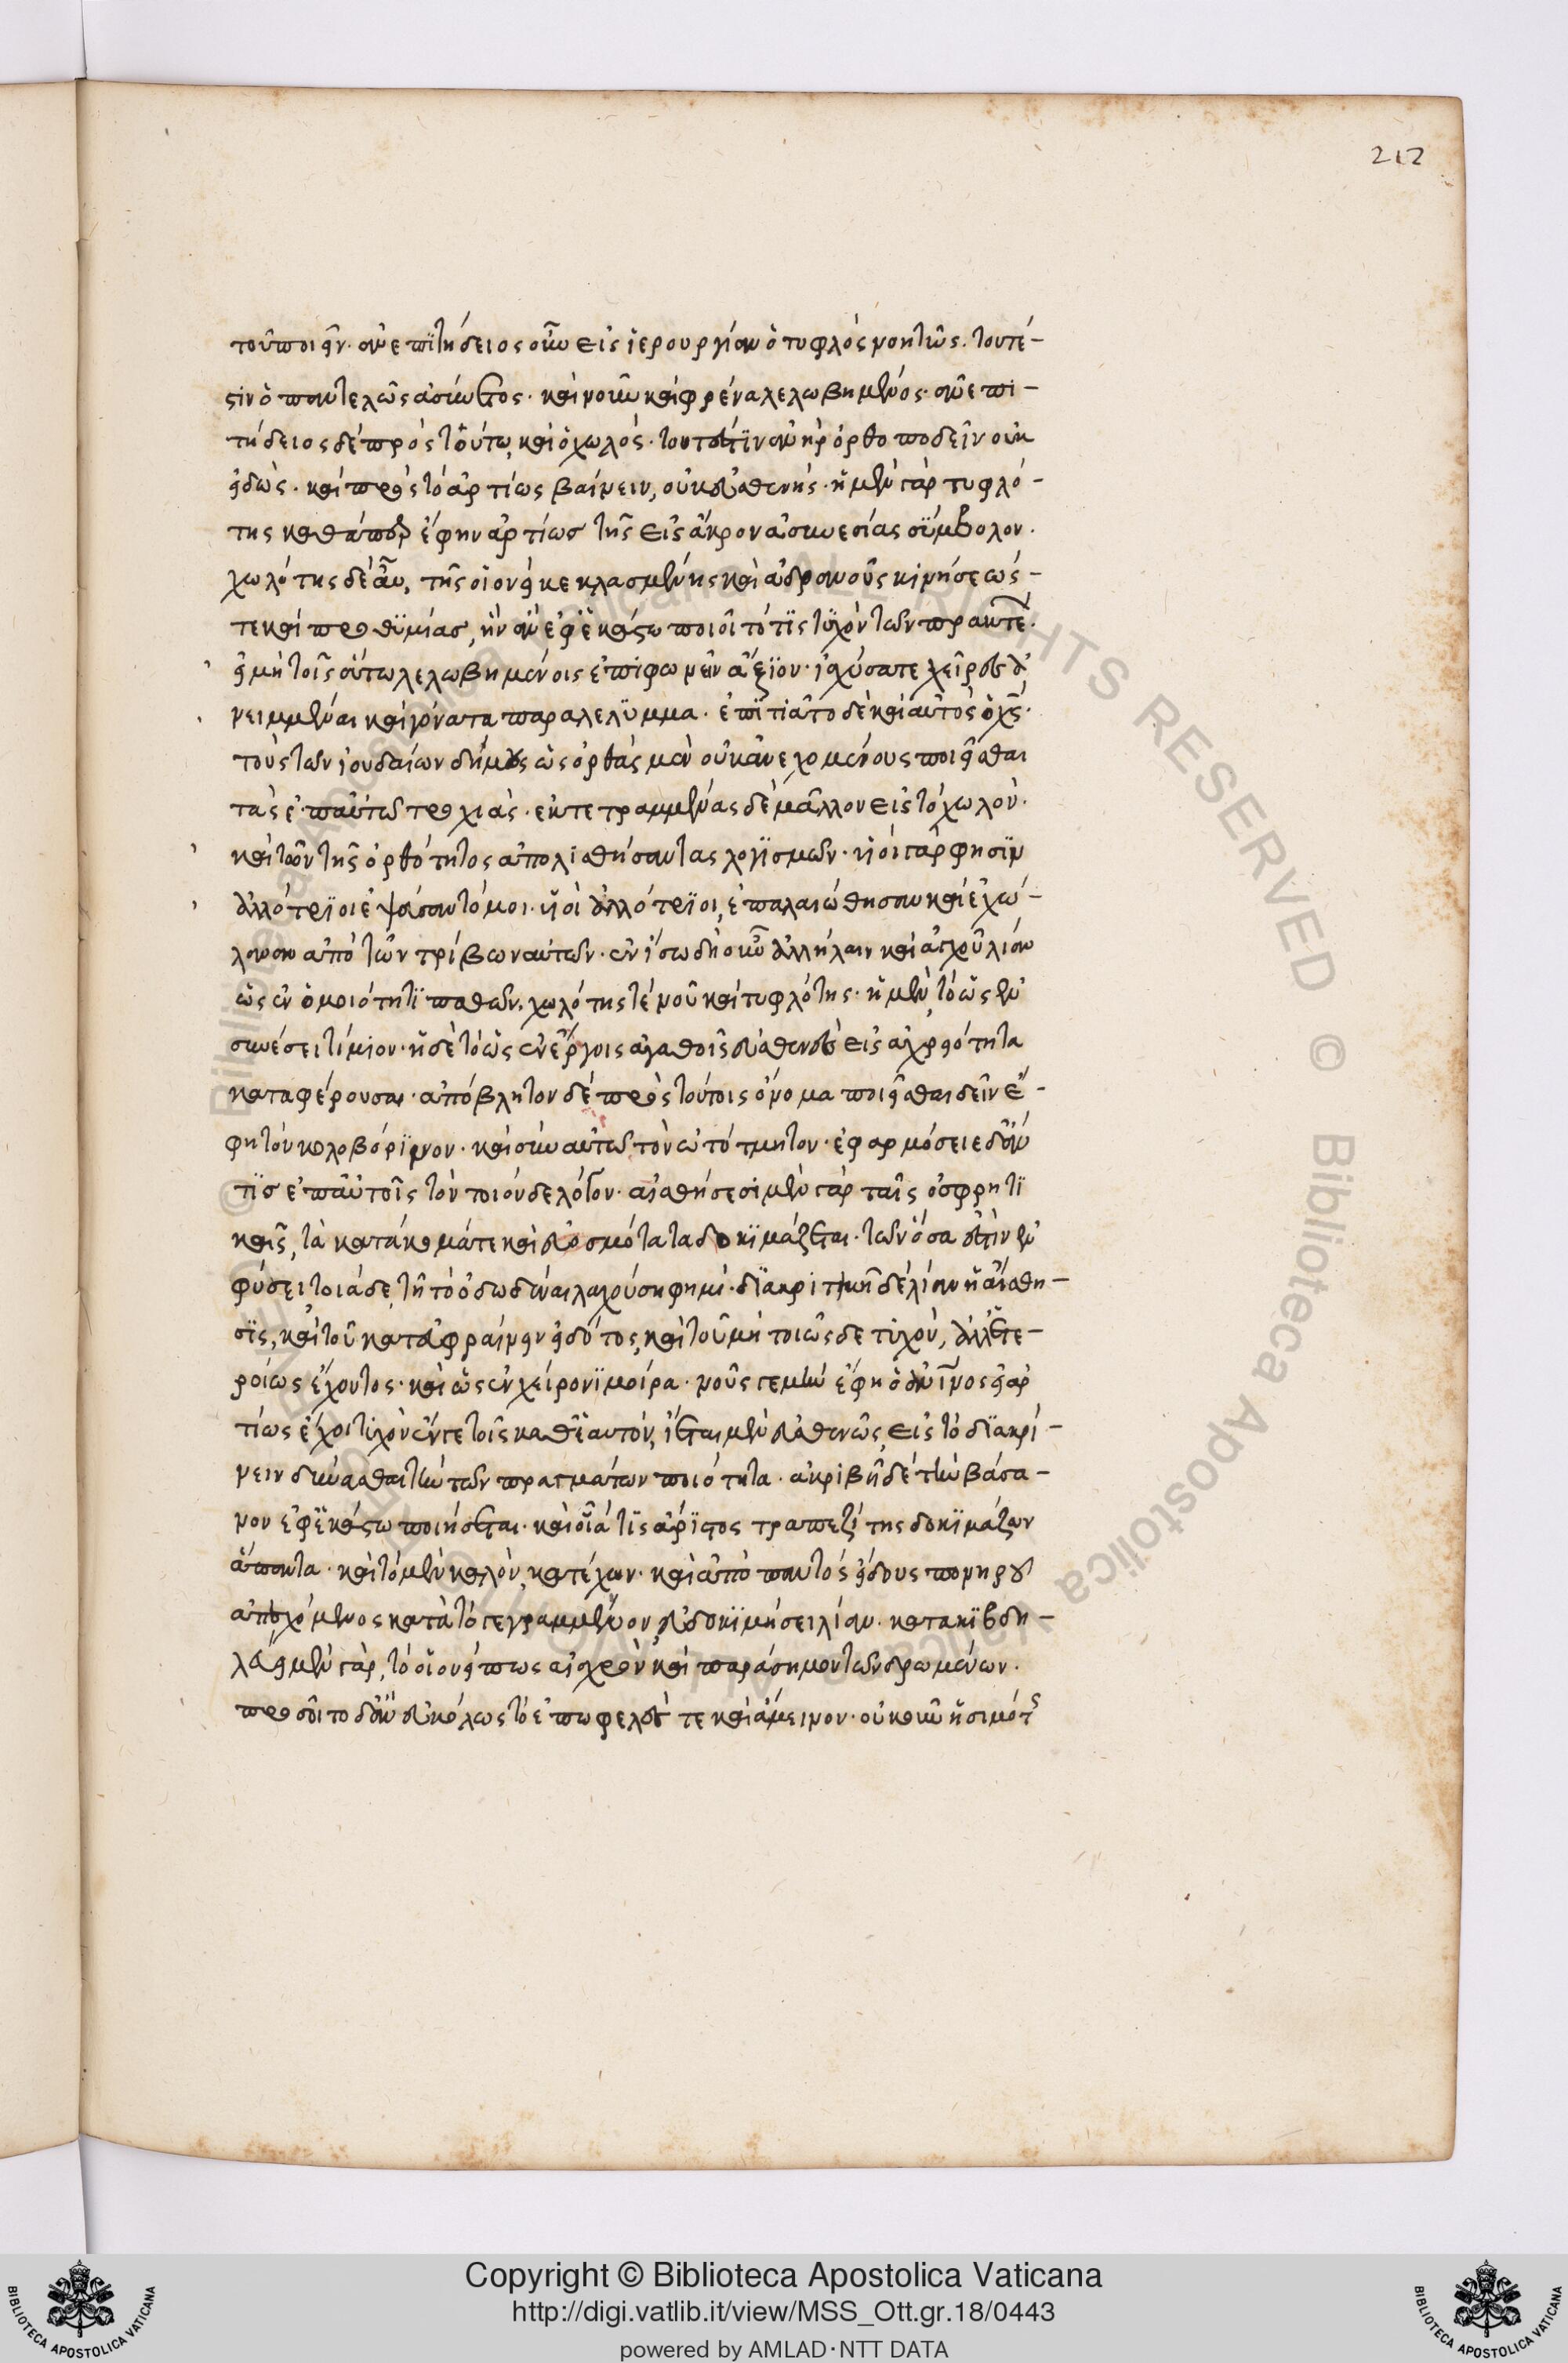 212
τοῦ ποιεῖν. ἀνεπιτήδειος οὖν εἰς ἱερουργίαν ὁ τυφλὸς νοητῶς. τουτέ-
στιν ὁ παντελῶς ἀσύνετος. καὶ νοῦν καὶ φρένα λελωβημένος. ἀνεπι-
τήδειος δὲ πρὸς τοῦτο, καὶ ὁ χωλός. τουτέστιν ἀνὴρ ὀρθοποδεῖν οὐκ
εἰδώς. καὶ πρὸς τὸ ἀρτίως βαίνειν, οὐκ εὐσθενής. ἡ μὲν γὰρ τυφλό-
της καθάπερ ἔφην ἀρτίως τῆς εἰς ἄκρον ἀσυνεσίας σύμβολον.
χωλότης δὲ αὖ, τῆς οἱονεὶ κεκλασμένης καὶ ἀδρανοῦς κινήσεώς-
τε καὶ προθυμίας, ἣν ἂν ἐφ' ἑκάστω ποιοῖτό τις τυχὸν τῶν πρακτέ.
εἰ μὴ τοῖς οὕτω λελωβημένοις ἐπιφωνεῖν ἄξιον. ἰσχύσατε χεῖρες ἀ
νειμμέναι καὶ γόνατα παραλελυμμα. ἐπιτιᾶτο δὲ καὶ αὐτὸς ὁ χς.
τοὺς τῶν ἰουδαίων δήμους ὡς ὀρθὰς μὲν οὐκ ἀνεχομένους ποιεῖσθαι
τὰς ἐπ' αὐτῶ τροχιάς. ἐκτετραμμένας δὲ μᾶλλον εἰς τὸ χωλόν.
καὶ τῶν τῆς ὀρθότητος ἀπολισθήσαντας λογισμῶν. υἱοὶ γάρ φησιν
ἀλλότριοι ἐψεύσαντό μοι. υἱοὶ ἀλλότριοι, ἐπαλαιώθησαν καὶ ἐχώ-
λαναν ἀπὸ τῶν τρίβων αὐτῶν. ἐν ἴσω δὴ οὖν ἀλλήλαιν καὶ αἰσχροῦ λίαν
ὡς ἐν ὁμοιότητι παθῶν. χωλότης τέ νοῦ καὶ τυφλότης. ἡ μὲν, τὸ ὡς ἐν
συνέσει τίμιον. ἡ δὲ τὸ ὡς ἐν ἔργοις ἀγαθοῖς εὐσθενὲς εἰς ἀχρειότητα
καταφέρουσαι. ἀπόβλητον δὲ πρὸς τούτοις ὄνομα ποιεῖσθαι δεῖν ἔ-
φη τὸν κολοβόρινον. καὶ σὺν αὐτῶ τὸν ὠτότμητον. ἐφαρμόσειε δ' ἄν
τις ἐπ' αὐτοῖς τὸν τοιόνδε λόγον. αἰσθήσεσι μὲν γὰρ ταῖς ὀσφρητι
καῖς, τὰ κατάκομά τε καὶ εὐοσμότατα δοκιμάζεται. τῶν ὅσα ἐστὶν ἐν
φύσει τοιάδε, τῆ τὸ ὀδωδέναι λαχούση φημί. διακριτικὴ δὲ λίαν ἡ αἴσθη-
σις, καὶ τοῦ κατευφραίνειν εἰδότος, καὶ τοῦ μὴ τοιῶσδε τυχόν, ἀλλ' ἑτε-
ροίως ἔχοντος. καὶ ὡς ἐν χείρονι μοίρα. νοῦς γε μὴν ἔφη ὁ ἄνος εἰ ἀρ
τίως ἔχοι τυχὸν ἔν γε τοῖς καθ' ἑαυτόν, ἵεται μὲν εὐσθενῶς, εἰς τὸ διακρί-
νειν δύνασθαι τὴν τῶν πραγμάτων ποιότητα. ἀκριβῆ δὲ τὴν βάσα-
νον ἐφ' ἑκάστω ποιήσεται. καὶ οἷά τις ἄριστος τραπεζίτης δοκιμάζων
ἅπαντα. καὶ τὸ μὲν καλὸν, κατέχων. καὶ ἀπὸ παντὸς εἴδους πονηροῦ
ἀπεχόμενος κατὰ τὸ γεγραμμένον, εὐδοκιμήσει λίαν. κατακιβδη-
λεύει μὲν γὰρ, τὸ οἱονεί πως αἰσχρὸν καὶ παράσημον τῶν δρωμένων.
προσοῖτο δ' ἂν εὐκόλως τὸ ἐπωφελές τε καὶ ἄμεινον. οὐκοῦν ἡ σιμότς
Copyright © Biblioteca Apostolica Vaticana
http://digi.vatlib.it/view/MSS_Ott.gr.18/0443
powered by AMLAD·NTT DATA
BIBLIOTECA APOSTOLICA VATICANA
BIBLIOTECA APOSTOLICA VATICANA